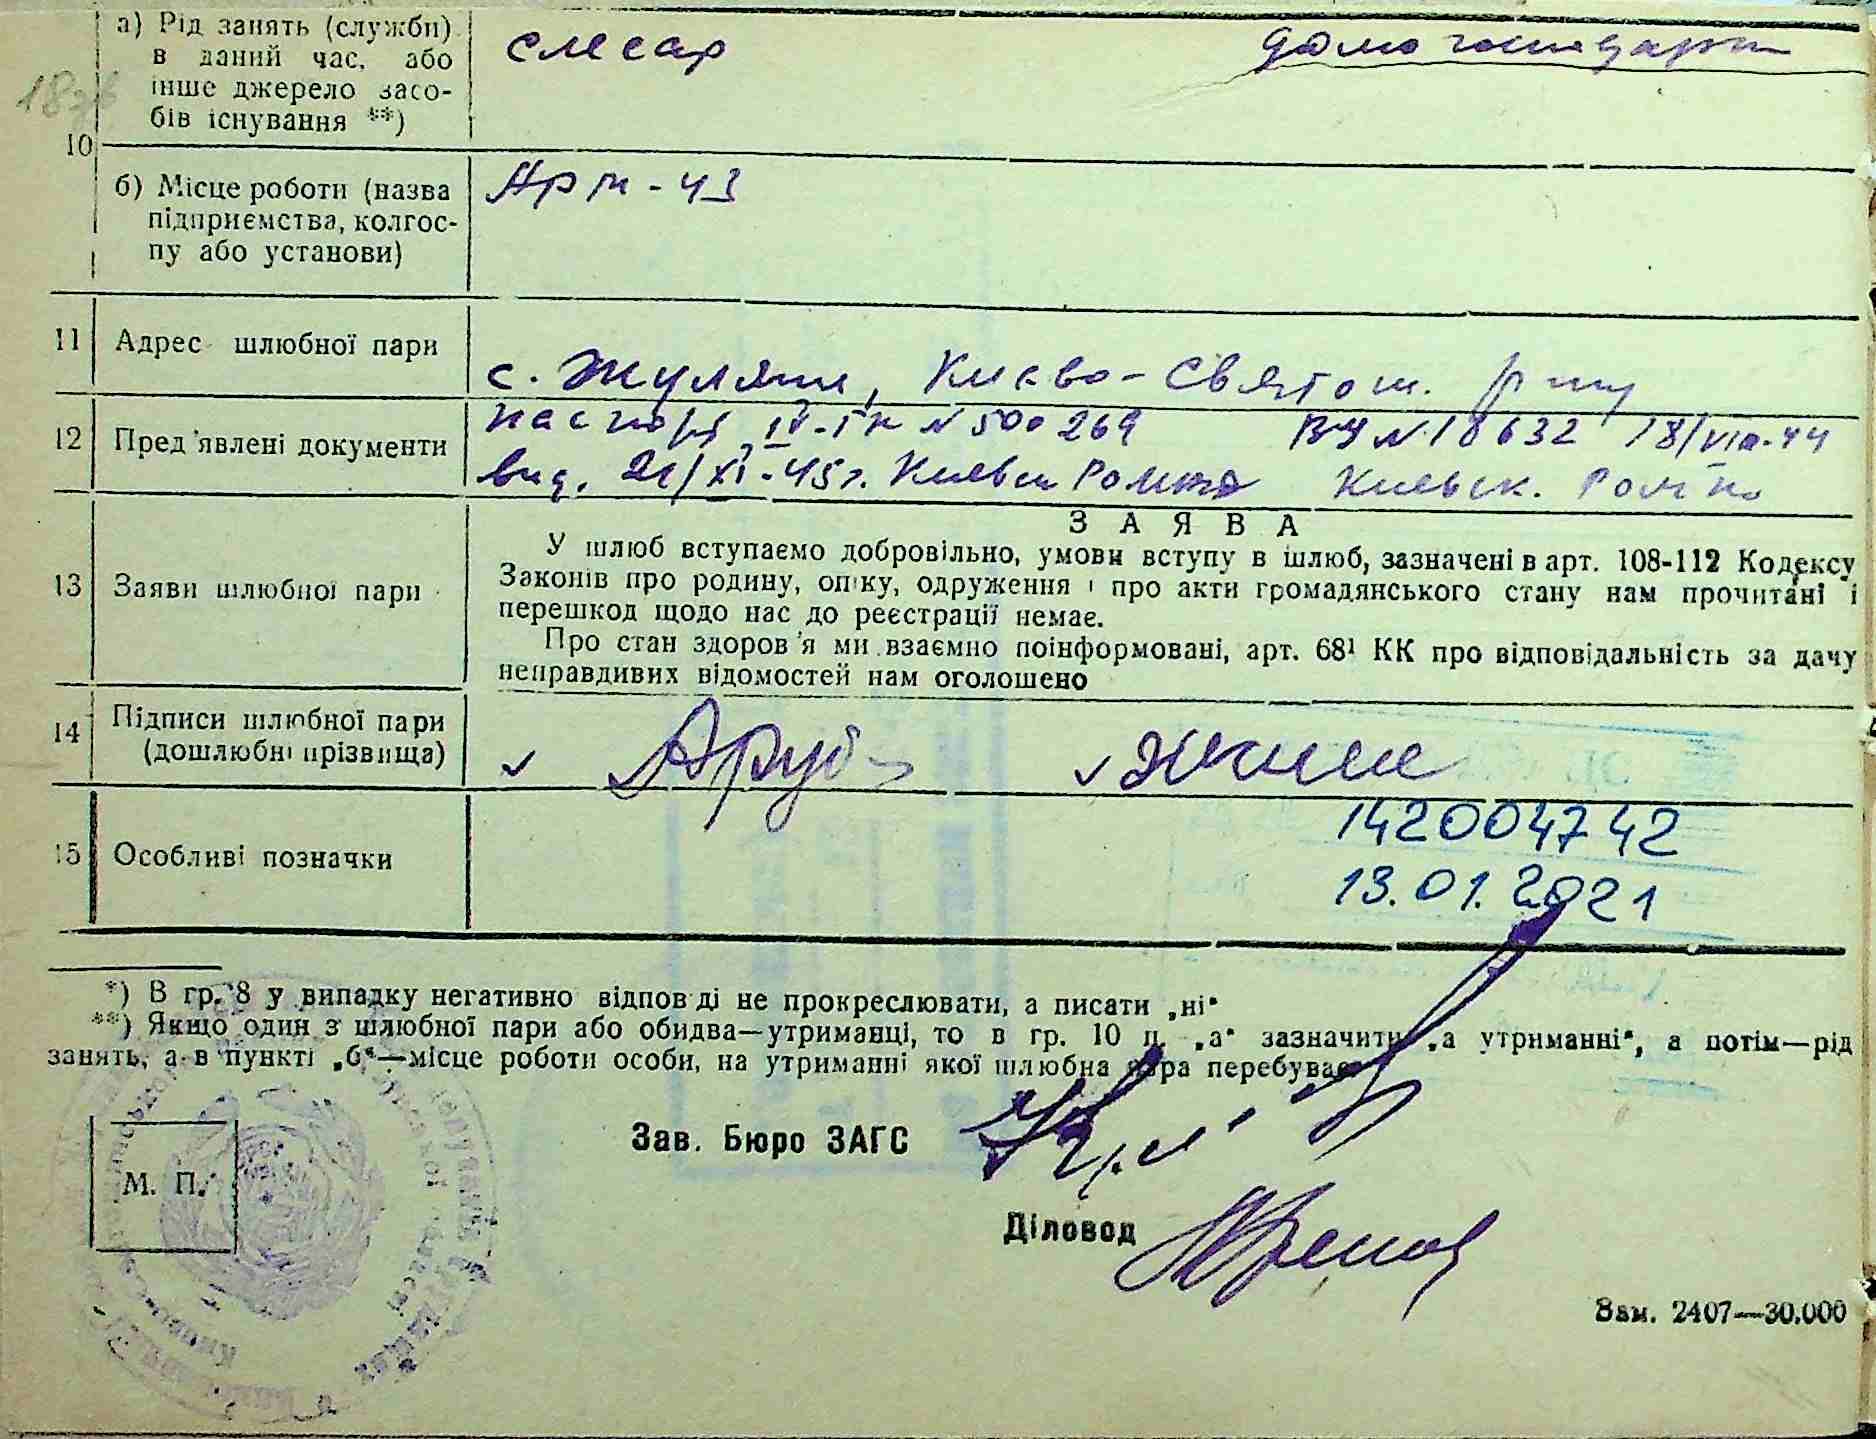 а) Рід занять (служби)
в даний час, або
інше джерело засо-
бів існування **)
слесар
домогосподарка
10
б) Місце роботи (назва
підприємства, колгос-
пу або установи)
11 Адрес шлюбної пари
с. Жуляни, Києво-Святош. р-ну
12 Пред'явлені документи
паспорт N 500269
ВУ N 18632 18/VIII-44
вид. 21/XI-45 г.
13 Заяви шлюбної пари
ЗАЯВА
У шлюб вступаємо добровільно, умови вступу в шлюб, зазначені в арт. 108-112 Кодексу
Законів про родину, опіку, одруження і про акти громадянського стану нам прочитані і
перешкод щодо нас до реєстрації немає.
Про стан здоров'я ми взаємно поінформовані, арт. 68¹ КК про відповідальність за дачу
неправдивих відомостей нам оголошено
14 Підписи шлюбної пари
(дошлюбні прізвища)
15 Особливі позначки
142004742
13.01.2021
*) В гр. 8 у випадку негативно відпов ді не прокреслювати, а писати „ні“
**) Якщо один з шлюбної пари або обидва—утриманці, то в гр. 10 п. „а“ зазначити „а утриманні“, а потім—рід
занять, а в пункті „б“—місце роботи особи, на утриманні якої шлюбна пара перебуває
Зав. Бюро ЗАГС
М. П.
Діловод
Зам. 2407—30.000